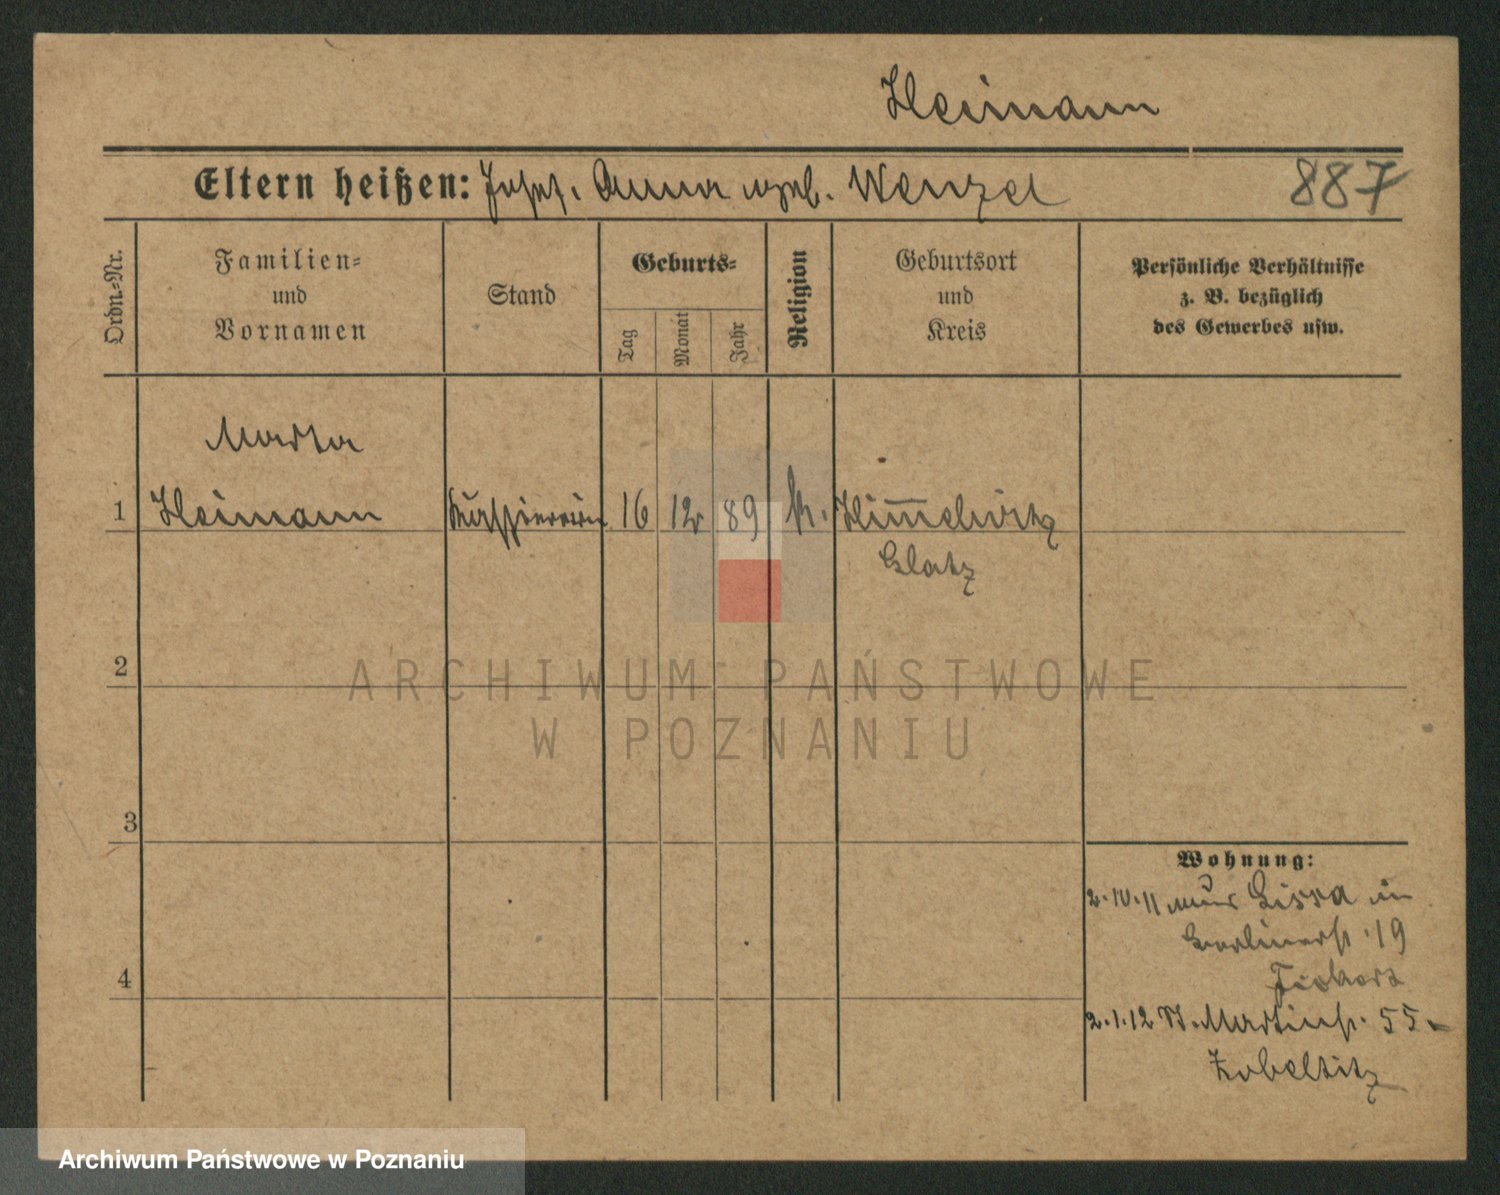 Heimann
Eltern heißen: Josef. Anna geb. Wenzel 887
Ordn.-Nr.
Familien-
und
Vornamen
Stand
Geburts-
Tag
Monat
Jahr
Religion
Geburtsort
und
Kreis
Persönliche Verhältnisse
z. B. bezüglich
des Gewerbes usw.
Martha
1 Heimann Kassiererin 16 12 89 k. Himmelwitz
Glatz
2
3
4
Wohnung:
2.10.11 aus Lissa in
Berlinerstr. 19
2.1.12 St. Martinstr. 55
Zobeltitz
ARCHIWUM PAŃSTWOWE
W POZNANIU
Archiwum Państwowe w Poznaniu